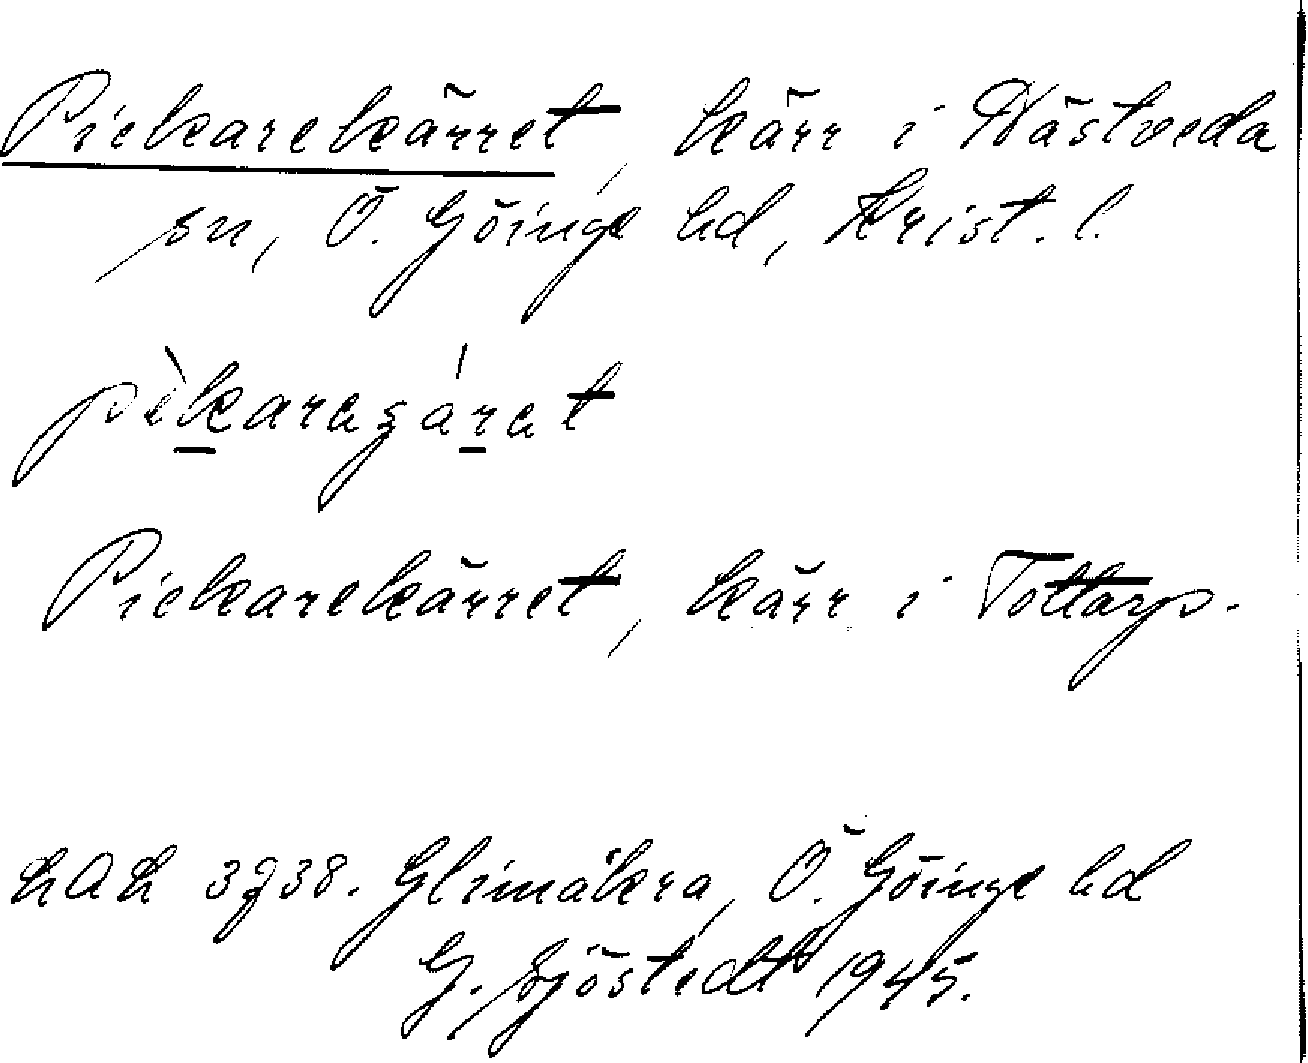 Pickarekärret, kärr i Nästveda
sn, Ö. Göinge hd, Krist. l.
pèkaragárat
Pickarekärret, kärr i Tottarp.
LAL 3738. Glimåkra, Ö. Göinge hd
G. Sjöstedt 1945.